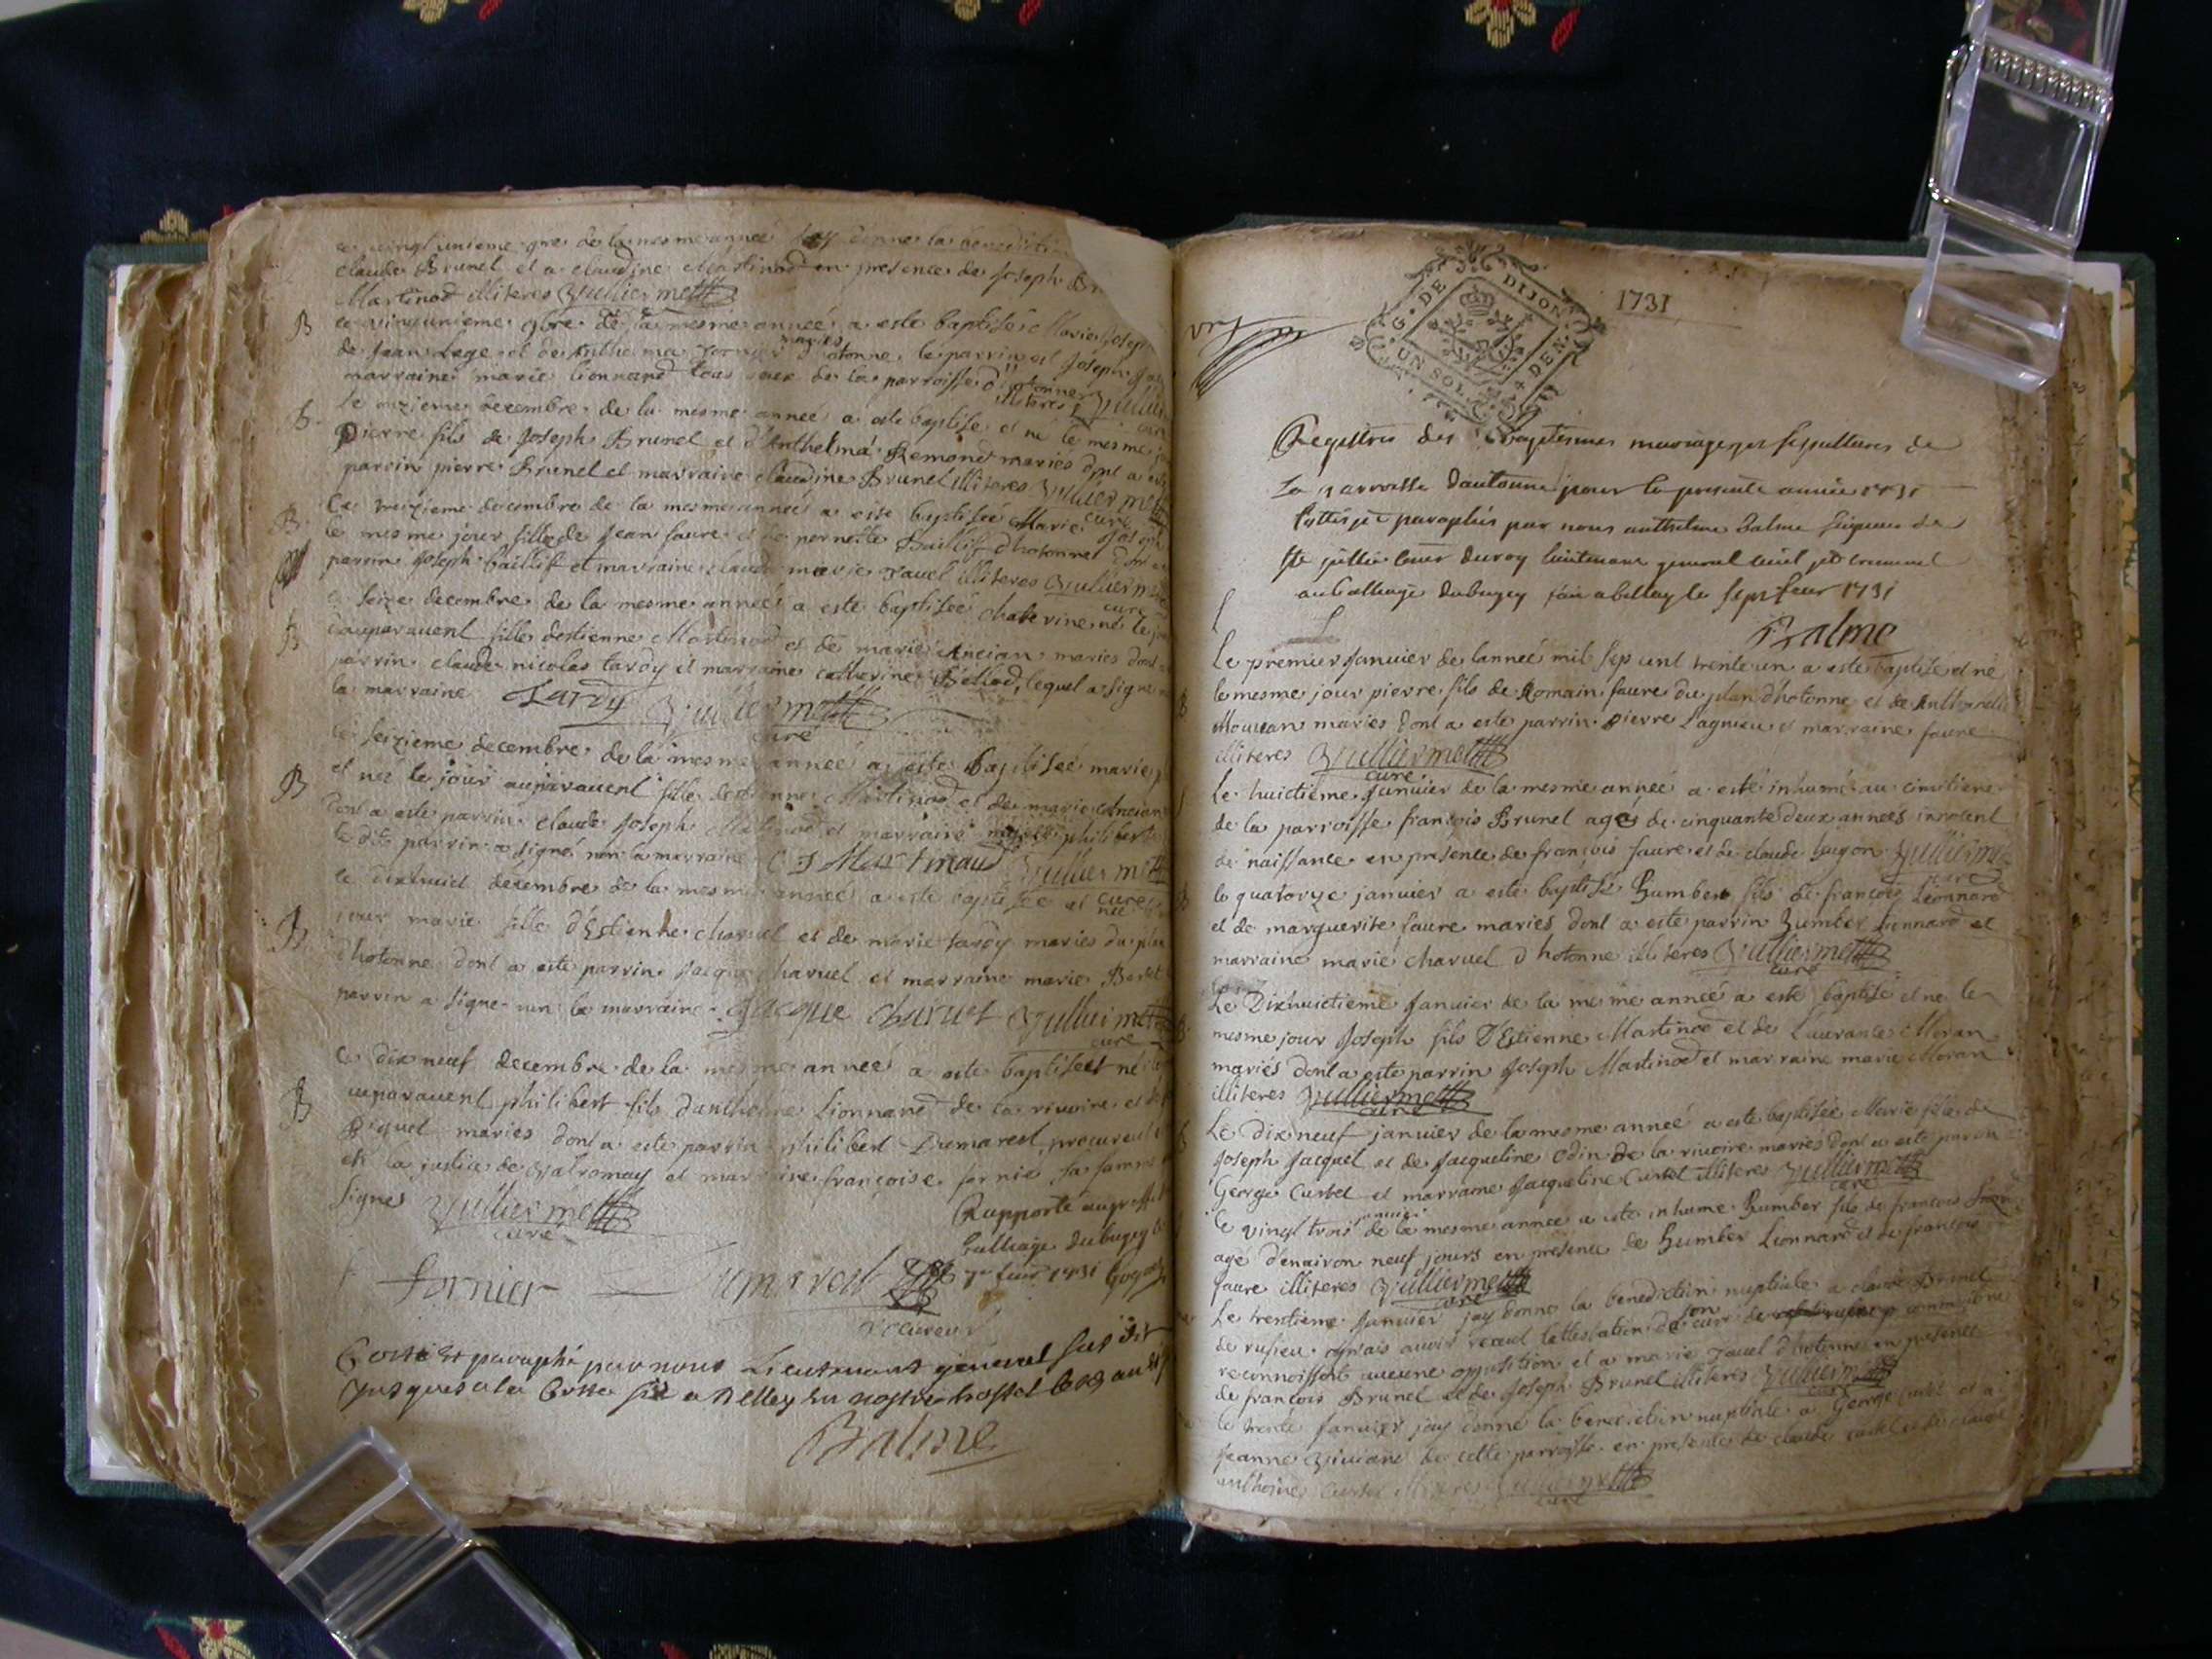 ce vingt unieme 9bre de la mesme année jay donné la benediction
claude Brunel et a claudine Martinod en presence de Joseph
Martinod illiteres Vulliermett
B
ce vingtunieme 9bre de la mesme année a esté baptisée Marie Joseph
de Jean Lege et de Anthelma mariés d'hotonne le parrin est Joseph
marraine marie Lionnard tous deux de la parroisse d'hotonne
illiteres
B
Le onzieme decembre de la mesme année a esté baptisé et né le mesme
Pierre fils de Joseph Brunel et d'Anthelma Remond mariés dont a esté
parrin pierre Brunel et marraine claudine Brunel illiteres Vulliermett
curé
B
Ce treizieme decembre de la mesme année a este baptisée Marie Joseph
le mesme jour fille de Jean faure et de pernette Baillif d'hotonne dont a
parrin Joseph Baillif et marraine claude marie Javel illiteres Vulliermett
curé
B
ce seize decembre de la mesme année a este baptisée chaterine né le jour
auparavent fille destienne Martinod et de marie Ancian mariés dont a
parrin claude nicolas tardy et marraine catherine Bellod, lequel a signé
la marraine Tardy Vulliermett
curé
B
ce seizieme decembre de la mesme année a este baptiseé marie
et née le jour auparavent fille destienne Martinod et de marie Ancian
dont a este parrin claude Joseph Martinod et marraine philiberte
le dit parrin a signé non la marraine C J Martinaud Vulliermett
curé
B
ce dixhuict decembre de la mesme année a esté baptisée et née
jour marie fille d'Estienne charvel et de marie tardy mariés du plan
d'hotonne dont a este parrin Jacque charvel et marraine marie
parrin a signe non la marraine Jacque Charvet Vulliermett
curé
B
Ce dix neuf decembre de la mesme année a este baptisé et né
auparavent philibert fils danthoine Lionnard de la rivoire et de
Piquel mariés dont a este parrin philibert Dumarest, procureur
en la justice de Valromay et marraine françoise fornié sa famme
signes Vulliermett
curé
Rapporté au greffe
balliage du bugey
7e feur 1731
fornier Dumarest
Procureur
Cotté et paraphé par nous Lieutenant géneral susdit
Jusques a la Cotte six a Belley en nostre hostel
Balme
1731
G. DE DIJON
UN SOL 4 DEN.
Registres des Baptesmes mariages et sepultures de
La parroisse dautonne pour la presente année 1731
Cottés et paraphés par nous anthelme Balme seigneur de
Ste jullie Conser du roy lieutenant general civil et criminel
au balliage du bugey fait a belley le sept feur 1731
Balme
Le premier Janvier de lanneé mil sep cent trente un a esté baptisé et né
le mesme jour pierre fils de Romain faure du plan d'hotonne et de Anthonelle
Moucan mariés dont a esté parrin pierre Lagnieu et marraine faure
illiteres Vulliermett
curé
Le huictieme Janvier de la mesme année a esté inhumé au cimitiere
de la parroisse françois Brunel agé de cinquante deux années innocent
de naissance en presence de françois faure et de claude hugon Vulliermett
curé
le quatorze janvier a este baptisé humbert fils de françois Lionnard
et de marguerite faure mariés dont a este parrin humber Lionnard et
marraine marie charvel d'hotonne illiteres Vulliermett
curé
Le Dixhuictieme Janvier de la mesme anneé a esté baptisé et né le
mesme jour Joseph fils D'Estienne Martinod et de Laurante Moran
mariés dont a este parrin Joseph Martinod et marraine marie Moran
illiteres Vulliermett
curé
Le dix neuf janvier de la mesme année a este baptisée Marie fille de
Joseph Jacquel et de Jacqueline Odin de la rivoire mariés dont a esté parrin
George Curtel et marraine Jacqueline Curtel illiteres Vulliermett
curé
janvier
Ce vingt trois de la mesme année a este inhumé humber fils de francois
agé denviron neuf jours en presence de humber Lionnard et de francois
faure illiteres Vulliermett
curé
Le trentieme Janvier jay donné la benediction nuptiale a claude Brunel
de rufieu apres avoir receut lettestation de son curé
reconnoissent aucune opposition et a marie Javel d'hotonne en presence
de françois Brunel et de Joseph Brunel illiteres Vulliermett
curé
le trente Janvier jay donné la benediction nuptiale a George Curtel et a
Jeanne Viviand de cette parroisse en presence de claude curtel et de claude
anthoine Curtel illiteres Vulliermett
curé